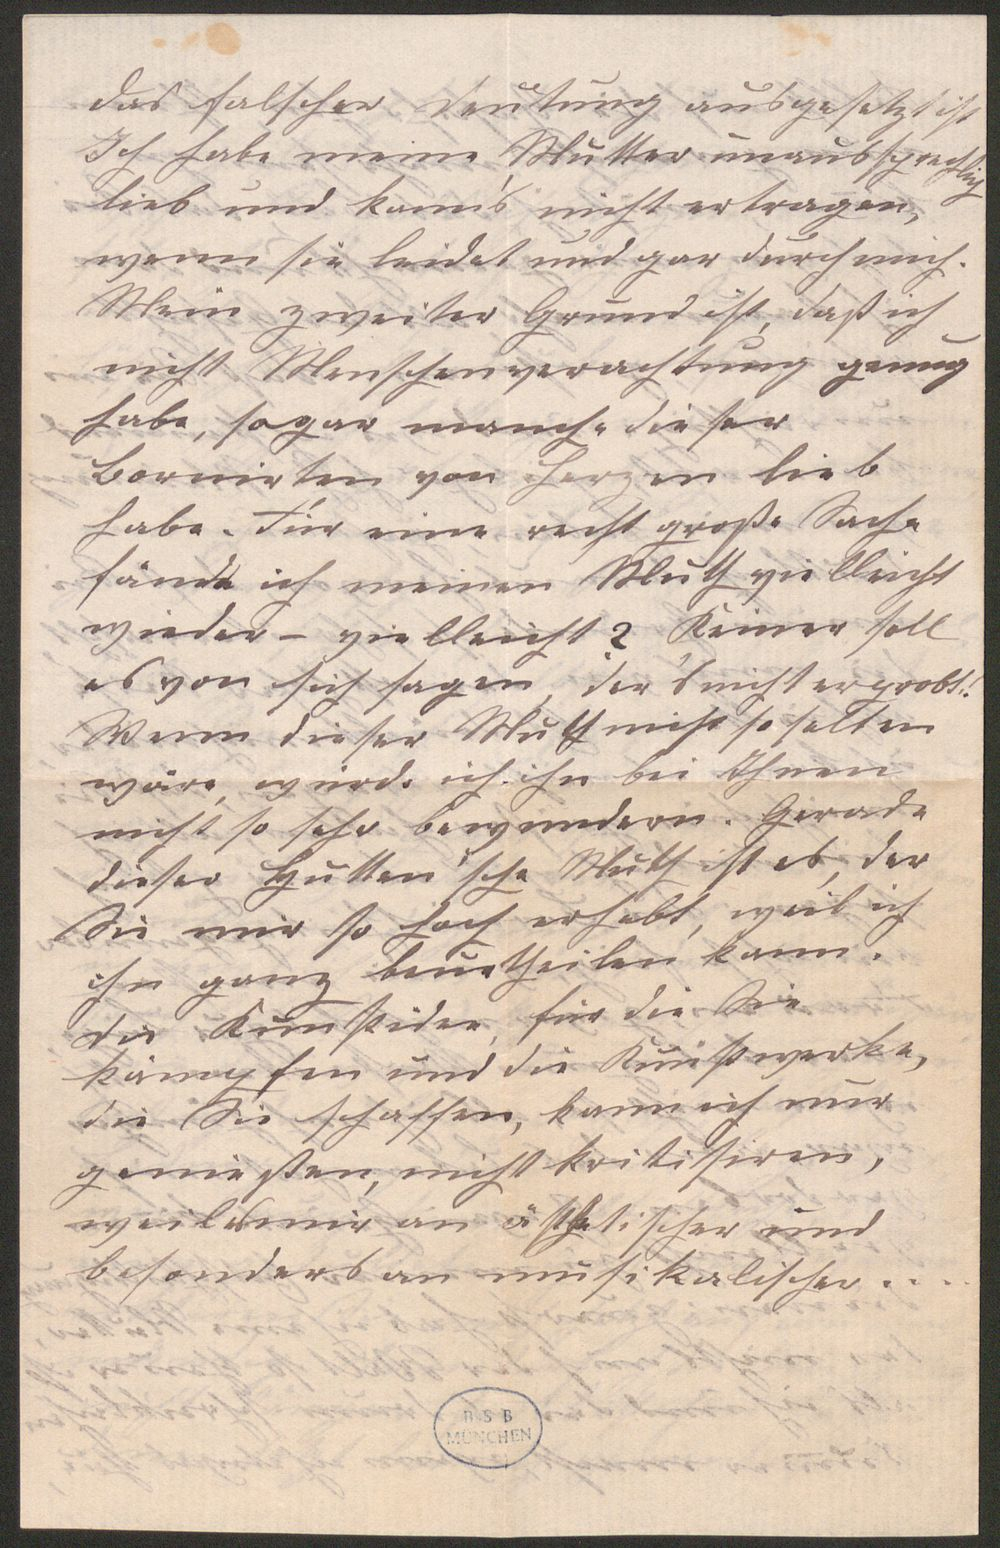 das falscher Deutung ausgesetzt ist
Ich habe meine Mutter unaussprechlich
lieb und kann's nicht ertragen,
wenn sie leidet und gar durch mich.
Mein zweiter Grund ist, daß ich
nicht Menschenverachtung genug
habe, sogar manche dieser
Bornirten von Herzen lieb
habe. Für eine recht große Sache
fände ich meinen Muth vielleicht
wieder – vielleicht? Keiner soll
es von sich sagen, der's nicht erprobt!
Wenn dieser Muth nicht so selten
wäre, würde ich ihn bei Ihnen
nicht so sehr bewundern. Gerade
dieser Hutten'sche Muth ist es, der
Sie mir so hoch erhebt, weil ich
ihn ganz beurtheilen kann.
Die Kunstidee, für die Sie
kämpfen und die Kunstwerke,
die Sie schaffen, kann ich nur
genießen, nicht kritisiren,
weil es mir an ästhetischer und
besonders an musikalischer . . . .
BSB
MÜNCHEN